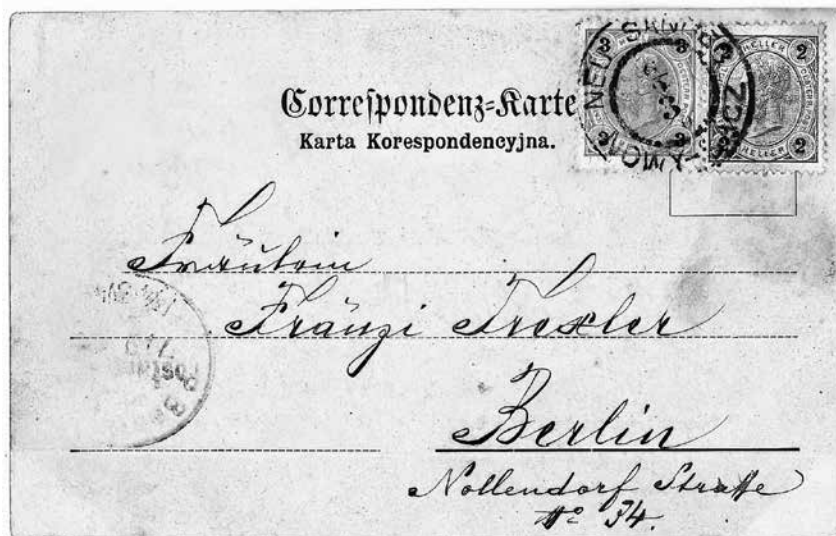 Correspondenz-Karte
Karta Korespondencyjna.
3 HELLER 3
3 3
HELLER 2
2 HELLER 2
NEU
NOWY
Fräulein
Fränzi Trexler
Berlin
Nollendorf Straße
No 34.